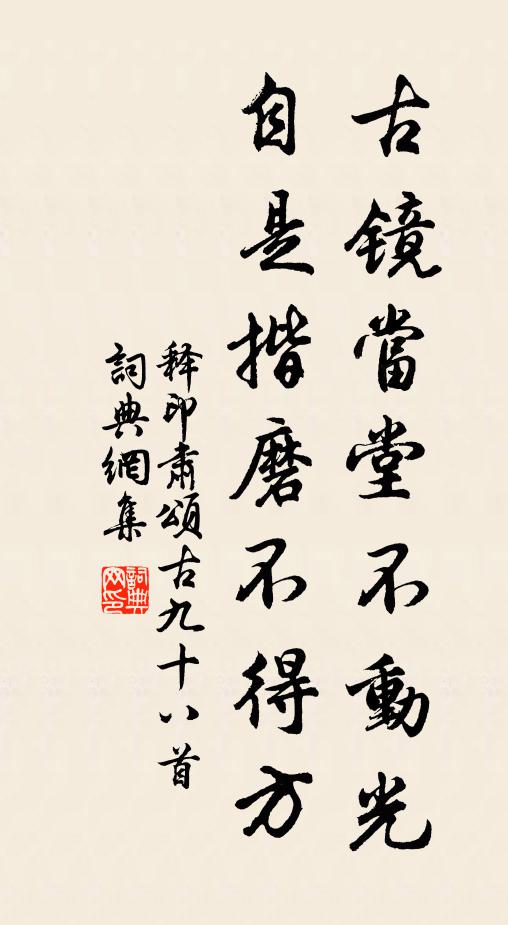 古镜當堂不動光
自是揩磨不得方
释印肃頌古九十八首
詞典網集
詞典
网印